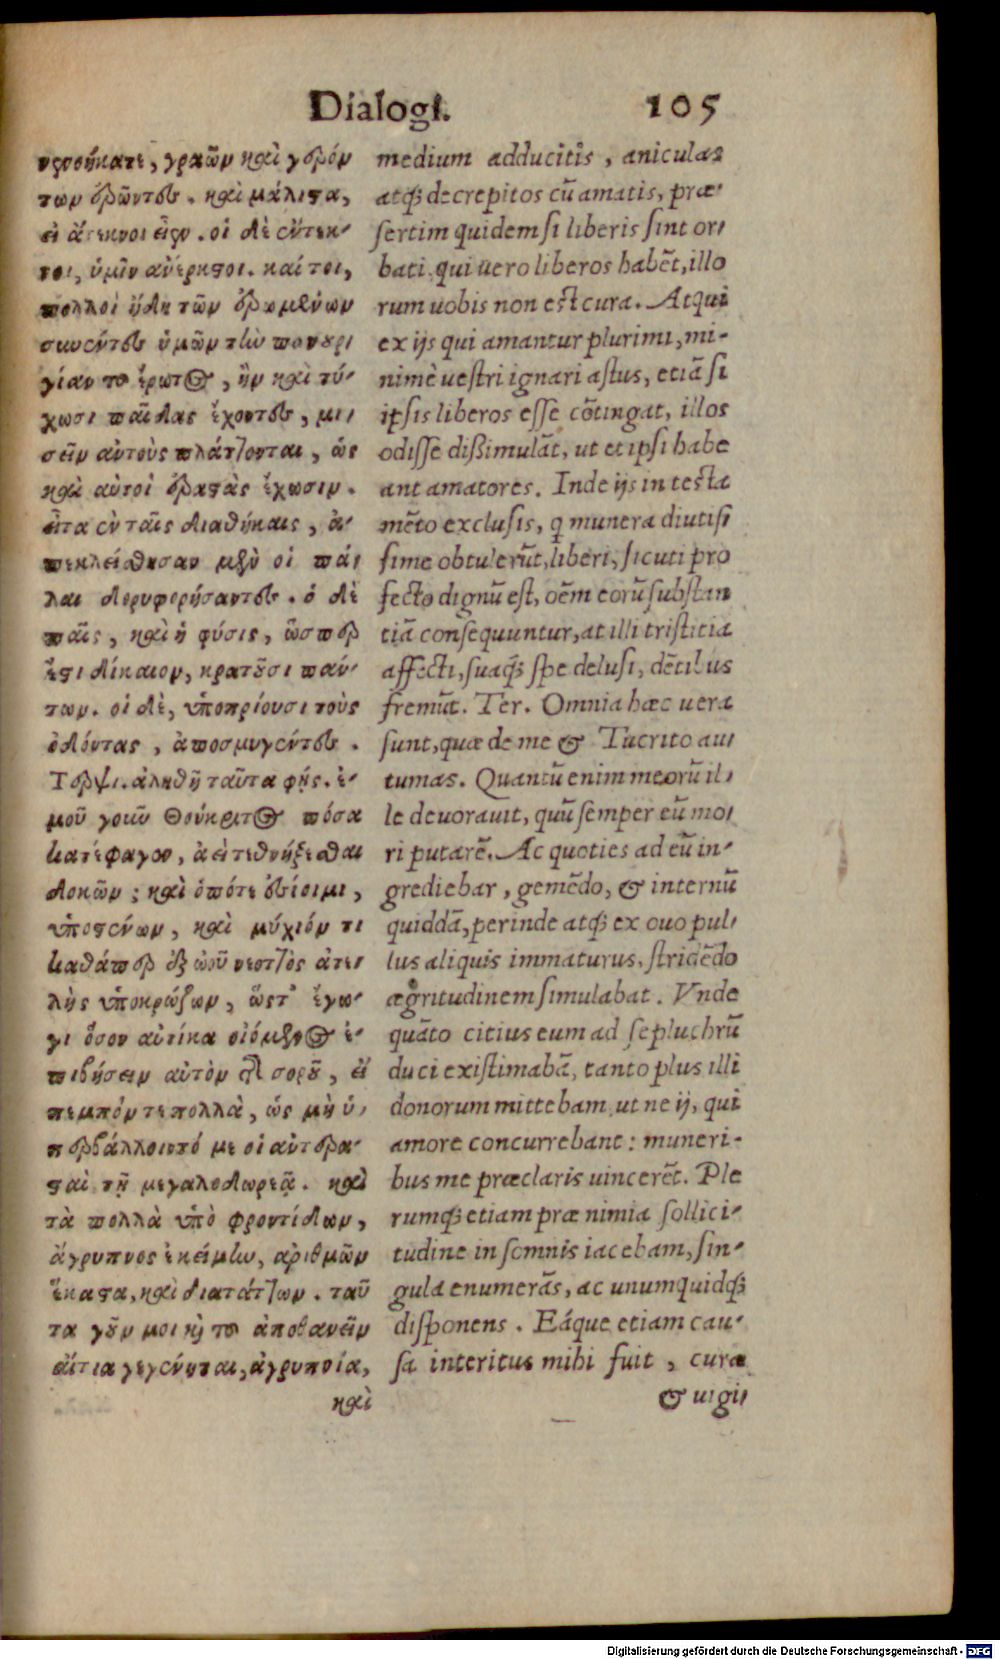 Dialogi. 105
νενοήκατε, γραῶν καὶ γερόν
των ἐρῶντες. καὶ μάλιστα,
εἰ ἄτεκνοι εἶεν. οἱ δὲ ἔντεκ-
νοι, ὑμῖν ἀνέραστοι. καίτοι,
πολλοὶ ἤδη τῶν ἐρωμένων
συνέντες ὑμῶν τὴν πανουρ
γίαν τοῦ ἔρωτος, ἢν καὶ τύ-
χωσι παῖδας ἔχοντες, μι-
σεῖν αὐτοὺς πλάττονται, ὡς
καὶ αὐτοὶ ἐραστὰς ἔχωσιν.
εἶτα ἐν ταῖς διαθήκαις, ἀ-
πεκλείσθησαν μὲν οἱ πά-
λαι δορυφορήσαντες. ὁ δὲ
παῖς, καὶ ἡ φύσις, ὥσπερ
ἐστὶ δίκαιον, κρατοῦσι πάν-
των. οἱ δὲ, ὑποπρίουσι τοὺς
ὀδόντας, ἀποσμυγέντες.
Τερψι. ἀληθῆ ταῦτα φῄς. ἐ-
μοῦ γοῦν Θούκριτος πόσα
κατέφαγον, ἀεὶ τεθνήξεσθαι
δοκῶν; καὶ ὁπότε ἐσίοιμι,
ὑποστένων, καὶ μύχιόν τι
καθάπερ ἐξ ὠοῦ νεοττὸς ἀτε-
λὴς ὑποκρώζων, ὥστ' ἔγω-
γε ὅσον αὐτίκα οἰόμενος ἐ-
πιβήσειν αὐτὸν τῆς σοροῦ, εἴ
πεμπόν τε πολλὰ, ὡς μὴ ὑ-
περβάλλοιντό με οἱ ἀντερα-
σταὶ τῇ μεγαλοδωρεᾷ. καὶ
τὰ πολλὰ ὑπὸ φροντίδων,
ἄγρυπνος ἐκείμην, ἀριθμῶν
ἕκαστα, καὶ διατάττων. ταῦ
τα γοῦν μοι καὶ τοῦ ἀποθανεῖν
αἴτια γεγένηται, ἀγρυπνία,
καὶ
medium adducitis, aniculas
atq; decrepitos cū amatis, præ-
sertim quidem si liberis sint or-
bati. qui uero liberos habēt, illo
rum uobis non est cura. Atqui
ex ijs qui amantur plurimi, mi-
nimè uestri ignari astus, etiā si
ipsis liberos esse cōtingat, illos
odisse dißimulāt, ut et ipsi habe
ant amatores. Inde ijs in testa
mēto exclusis, q munera diutis
sime obtulerūt, liberi, sicuti pro
fecto dignū est, oēm eorū substan
tiā consequuntur, at illi tristitia
affecti, suaq; spe delusi, dētibus
fremūt. Ter. Omnia hæc uera
sunt, quæ de me & Tucrito au-
tumas. Quantū enim meorū il-
le deuorauit, quū semper eū mo-
ri putarē. Ac quoties ad eū in-
grediebar, gemēdo, & internū
quiddā, perinde atq; ex ouo pul-
lus aliquis immaturus, stridēdo
ægritudinem simulabat. Vnde
quāto citius eum ad sepluchrū
duci existimabā, tanto plus illi
donorum mittebam ut ne ij, qui
amore concurrebant: muneri-
bus me præclaris uincerēt. Ple
rumq; etiam præ nimia sollici-
tudine in somnis iacebam, sin-
gula enumerās, ac unumquidq;
disponens. Eáque etiam cau-
sa interitus mihi fuit, curæ
& uigi-
Digitalisierung gefördert durch die Deutsche Forschungsgemeinschaft - DFG